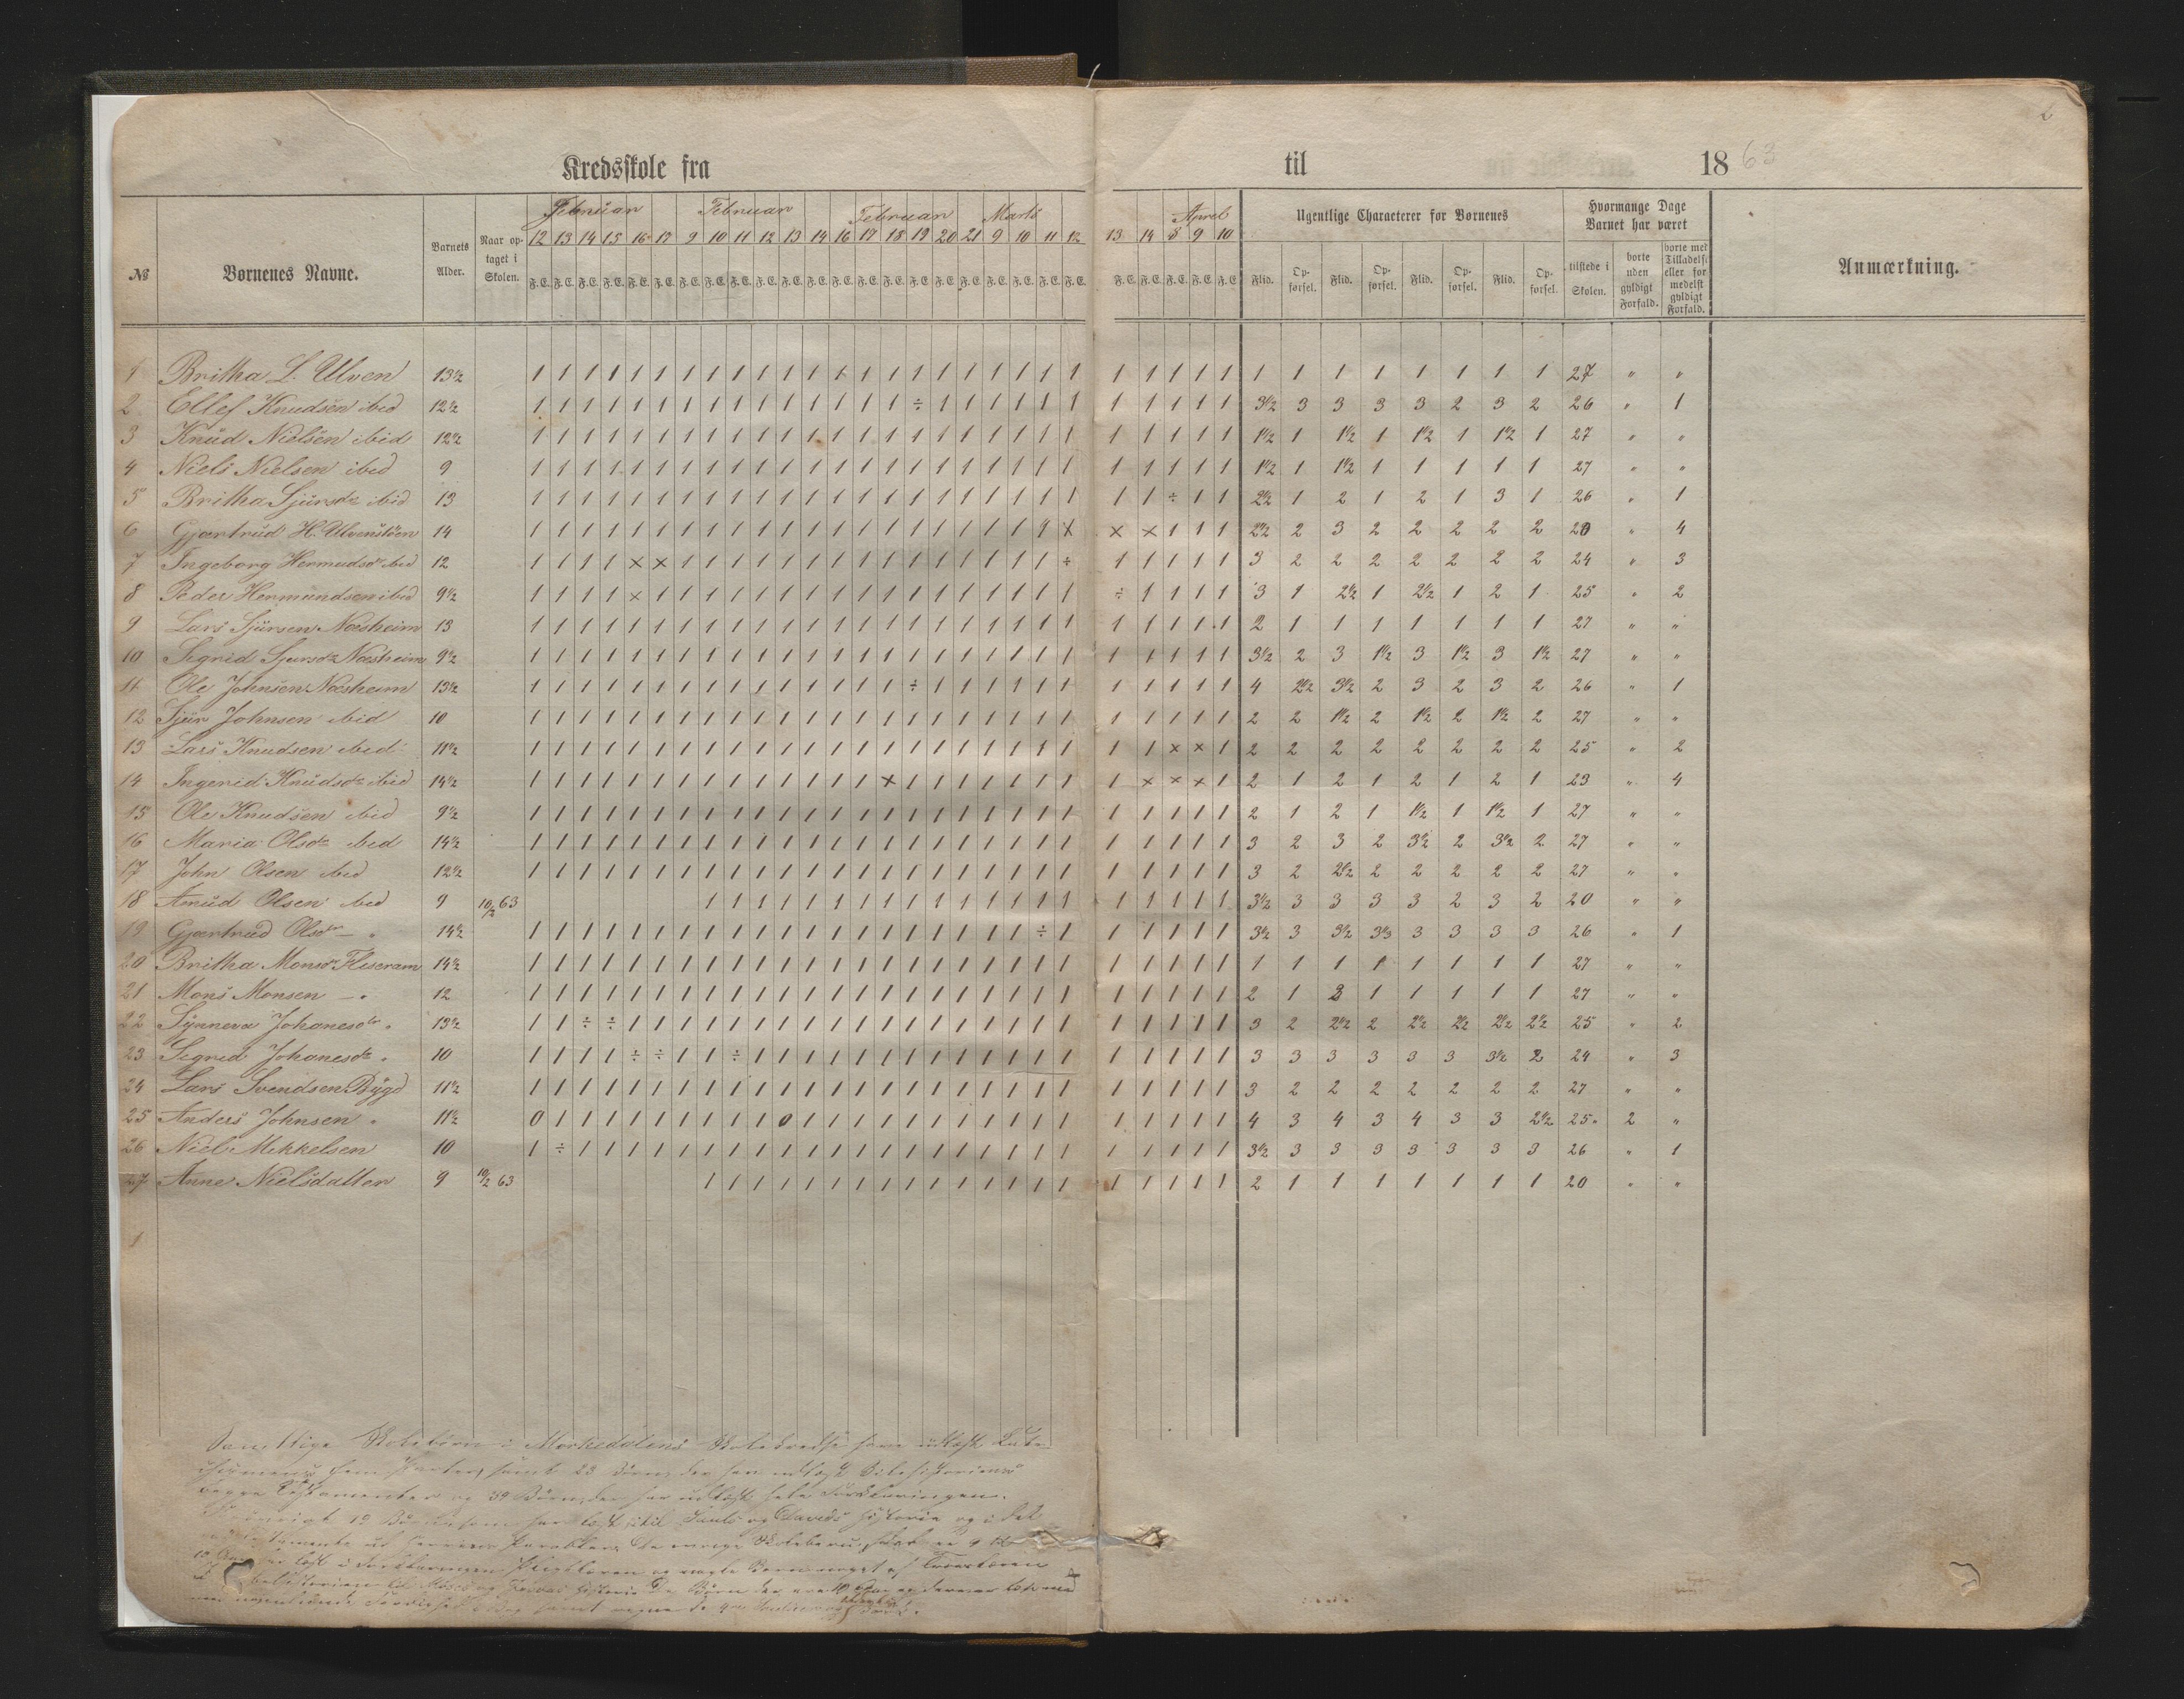 2
Kredsskole fra til 18 63
№ Børnenes Navne. Barnets Alder. Naar op-taget i Skolen. Februar Februar Februar Marts Aprel Ugentlige Characterer for Børnenes Hvormange Dage Barnet har været Anmærkning.
12 13 14 15 16 17 9 10 11 12 13 14 16 17 18 19 20 21 9 10 11 12 13 14 8 9 10
F.E. F.E. F.E. F.E. F.E. F.E. F.E. F.E. F.E. F.E. F.E. F.E. F.E. F.E. F.E. F.E. F.E. F.E. F.E. F.E. F.E. F.E. F.E. F.E. F.E. F.E. F.E. Flid. Op-førsel. Flid. Op-førsel. Flid. Op-førsel. Flid. Op-førsel. tilstede i Skolen. borte uden gyldigt Forfald. borte med Tilladelse eller for medelst gyldigt Forfald.
1 Britha L. Ulven 13½ 1 1 1 1 1 1 1 1 1 1 1 1 1 1 1 1 1 1 1 1 1 1 1 1 1 1 1 1 1 1 1 1 1 1 1 27 " "
2 Ellef Knudsen ibid 12½ 1 1 1 1 1 1 1 1 1 1 1 1 1 1 1 ÷ 1 1 1 1 1 1 1 1 1 1 1 3½ 3 3 3 3 2 3 2 26 " 1
3 Knud Nielsen ibid 12½ 1 1 1 1 1 1 1 1 1 1 1 1 1 1 1 1 1 1 1 1 1 1 1 1 1 1 1 1½ 1 1½ 1 1½ 1 1½ 1 27 " "
4 Niels Nielsen ibid 9 1 1 1 1 1 1 1 1 1 1 1 1 1 1 1 1 1 1 1 1 1 1 1 1 1 1 1 1½ 1 1½ 1 1 1 1 1 27 " "
5 Britha Sjursdr ibid 13 1 1 1 1 1 1 1 1 1 1 1 1 1 1 1 1 1 1 1 1 1 1 1 1 ÷ 1 1 2½ 1 2 1 2 1 3 1 26 " 1
6 Gjærtrud H. Ulvenstöen 14 1 1 1 1 1 1 1 1 1 1 1 1 1 1 1 1 1 1 1 1 1 X × × 1 1 1 2½ 2 3 2 2 2 2 2 20 " 4
7 Ingeborg Hermudsdr ibid 12 1 1 1 1 × × 1 1 1 1 1 1 1 1 1 1 1 1 1 1 1 ÷ 1 1 1 1 1 3 2 2 2 2 2 2 2 24 " 3
8 Peder Hermundsen ibid 9½ 1 1 1 1 × 1 1 1 1 1 1 1 1 1 1 1 1 1 1 1 1 1 ÷ 1 1 1 1 3 1 2½ 1 2½ 1 2 1 25 " 2
9 Lars Sjursen Næsheim 13 1 1 1 1 1 1 1 1 1 1 1 1 1 1 1 1 1 1 1 1 1 1 1 1 1 1 1 2 1 1 1 1 1 1 1 27 " "
10 Sigrid Sjursdr Næsheim 9½ 1 1 1 1 1 1 1 1 1 1 1 1 1 1 1 1 1 1 1 1 1 1 1 1 1 1 1 3½ 2 3 1½ 3 1½ 3 1½ 27 " "
11 Ole Johnsen Næsheim 13½ 1 1 1 1 1 1 1 1 1 1 1 1 1 1 1 ÷ 1 1 1 1 1 1 1 1 1 1 1 4 2½ 3½ 2 3 2 3 2 26 " 1
12 Sjur Johnsen ibid 10 1 1 1 1 1 1 1 1 1 1 1 1 1 1 1 1 1 1 1 1 1 1 1 1 1 1 1 2 2 1½ 2 1½ 2 1½ 2 27 " "
13 Lars Knudsen ibid 11½ 1 1 1 1 1 1 1 1 1 1 1 1 1 1 1 1 1 1 1 1 1 1 1 1 × × 1 2 2 2 2 2 2 2 2 25 " 2
14 Ingerid Knudsdr ibid 14½ 1 1 1 1 1 1 1 1 1 1 1 1 1 1 × 1 1 1 1 1 1 1 1 × × × 1 2 1 2 1 2 1 2 1 23 " 4
15 Ole Knudsen ibid 9½ 1 1 1 1 1 1 1 1 1 1 1 1 1 1 1 1 1 1 1 1 1 1 1 1 1 1 1 2 1 2 1 1½ 1 1½ 1 27 " "
16 Maria Olsdr ibid 14½ 1 1 1 1 1 1 1 1 1 1 1 1 1 1 1 1 1 1 1 1 1 1 1 1 1 1 1 3 2 3 2 3½ 2 3½ 2 27 " "
17 John Olsen ibid 12½ 1 1 1 1 1 1 1 1 1 1 1 1 1 1 1 1 1 1 1 1 1 1 1 1 1 1 1 3 2 2½ 2 2 2 2 2 27 " "
18 Amud Olsen ibid 9 10/2 63 1 1 1 1 1 1 1 1 1 1 1 1 1 1 1 1 1 1 1 1 3½ 3 3 3 3 2 3 2 20 " "
19 Gjærtrud Olsdr — " 14½ 1 1 1 1 1 1 1 1 1 1 1 1 1 1 1 1 1 1 1 1 ÷ 1 1 1 1 1 1 3½ 3 3½ 3½ 3 3 3 3 26 " 1
20 Britha Monsdr Fleseram 14½ 1 1 1 1 1 1 1 1 1 1 1 1 1 1 1 1 1 1 1 1 1 1 1 1 1 1 1 1 1 1 1 1 1 1 1 27 " "
21 Mons Monsen — " 12 1 1 1 1 1 1 1 1 1 1 1 1 1 1 1 1 1 1 1 1 1 1 1 1 1 1 1 2 1 3 1 1 1 1 1 27 " "
22 Synneva Johanesdr " 13½ 1 1 ÷ ÷ 1 1 1 1 1 1 1 1 1 1 1 1 1 1 1 1 1 1 1 1 1 1 1 3 2 2½ 2 2½ 2½ 2½ 2½ 25 " 2
23 Sigrid Johanesdr " 10 1 1 1 1 ÷ ÷ 1 1 ÷ 1 1 1 1 1 1 1 1 1 1 1 1 1 1 1 1 1 1 3 3 3 3 3 3 3½ 2 24 " 3
24 Lars Svendsen Bygd 11½ 1 1 1 1 1 1 1 1 1 1 1 1 1 1 1 1 1 1 1 1 1 1 1 1 1 1 1 3 2 2 2 2 2 2 2 27 " "
25 Anders Johnsen " 11½ 0 1 1 1 1 1 1 1 1 1 0 1 1 1 1 1 1 1 1 1 1 1 1 1 1 1 1 4 3 4 3 4 3 3 2½ 25 2 "
26 Niel Mikkelsen 10 1 ÷ 1 1 1 1 1 1 1 1 1 1 1 1 1 1 1 1 1 1 1 1 1 1 1 1 1 3½ 3 3 3 3 3 3 3 26 " 1
27 Anne Nielsdatter 9 10/2 63 1 1 1 1 1 1 1 1 1 1 1 1 1 1 1 1 1 1 1 1 2 1 1 1 1 1 1 1 20 " "
1
Samtlige Skolebörn i Morkedalens
samt 23 Börn der har udlæst Bibelhistoriens
begge Testamenter og 39 Börn der har udlæst hele Forklaringen.
19 Börn som har læst til Sauls og Davids Historie og i det
Skolebörn
læst i Forklaringen
Historie Börn der